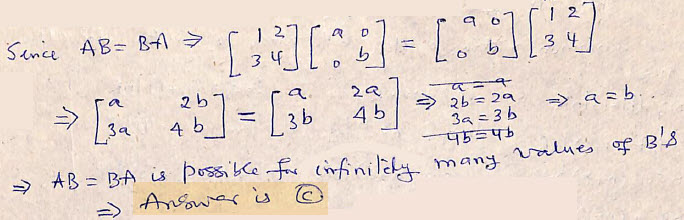 Since AB = BA ⇒ [1 2 3 4] [a 0 0 b] = [a 0 0 b] [1 2 3 4]
⇒ [a 2b 3a 4b] = [a 2a 3b 4b] ⇒ a = a 2b = 2a 3a = 3b 4b = 4b ⇒ a = b.
⇒ AB = BA is possible for infinitely many values of B's
⇒ Answer is ©